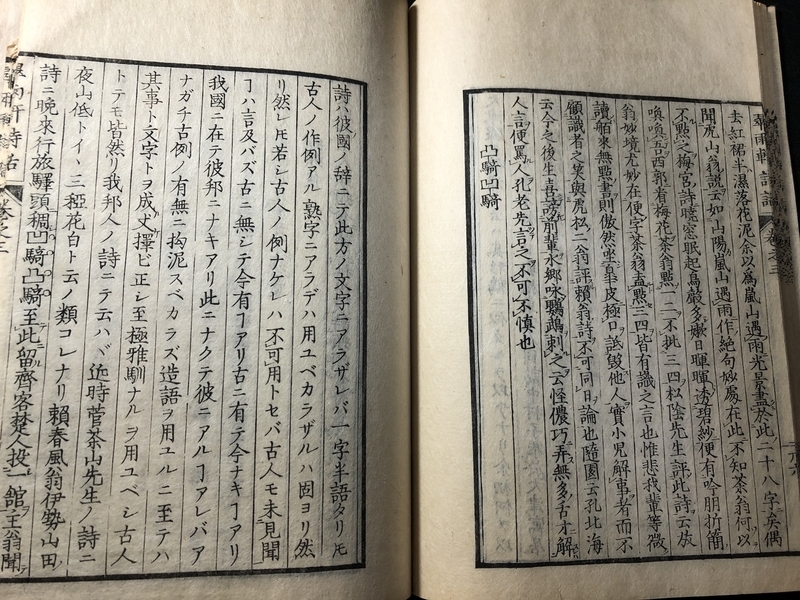 雨軒詩話 卷之三
去紅裙半濕落花泥余以為嵐山遇雨光景盡於此二十八字矣偶
聞虎山翁説云如山陽嵐山遇雨作絶句妙處在此不知茶翁何以
不點之梅宮詩曉窓眠起鳥嚴多嫩日暉暉透碧紗便有吟朋折簡
喚喚吾西郭有梅花茶翁點一二不批三四松陰先生評此詩云放
翁妙境尤妙在便字茶翁盍點三四皆有識之言也惟悲我輩等微
讀舶來無點書則傲然坐皐皮極口詆毀他人實小兒解事者而不
顧識者之笑與虎松二翁評頼翁詩不可同日論也隨園云孔北海
云今之後生喜謗前輩水郷咏鸚鵡刺之云怪儂巧弄無多舌才解
人言便罵人孔老先言之不可不慎也
凸騎凹騎
詩ハ彼國ノ辞ニテ此方ノ文字ニアラザレバ一字半語タリ𪜈
古人ノ作例アル熟字ニアラデハ用ユベカラザルハ固ヨリ然
リ然レ𪜈若シ古人ノ例ナケレハ不可用トセバ古人モ未見聞
ヿハ言及バズ古ニ無シテ今有ヿアリ古ニ有テ今ナキヿアリ
我國ニ在テ彼邦ニナキアリ此ニナクテ彼ニアルヿアレバア
ナガチ古例ノ有無ニ拘泥スベカラズ造語ヲ用ユルニ至テハ
其事ト文字トヲ成丈擇ビ正シ至極雅馴ナルヲ用ユベシ古人
トテモ皆然リ我邦人ノ詩ニテ云ハヾ近時菅茶山先生ノ詩ニ
夜山低トイヽ三椏花白ト云ノ類コレナリ頼春風翁伊勢山田
詩ニ晩來行旅驛頭稠凹騎凸騎至此留齊客楚人投一館主翁聞